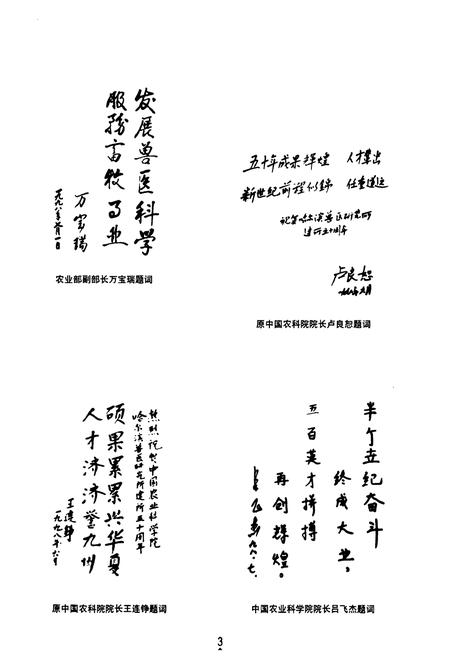 发展兽医科学
服务畜牧事业
万宝瑞
一九九八年六月一日
农业部副部长万宝瑞题词
五十年成果辉煌 人才辈出
新世纪前程似锦 任重道远
祝贺哈尔滨兽医研究所
建所五十周年
卢良恕
原中国农科院院长卢良恕题词
热烈祝贺中国农业科学院
哈尔滨兽医研究所建所五十周年
硕果累累兴华夏
人才济济誉九州
王连铮
一九九八年六月
原中国农科院院长王连铮题词
半个世纪奋斗
终成大业。
五百英才拼搏
再创辉煌。
吕飞杰 九八.七.
中国农业科学院院长吕飞杰题词
3